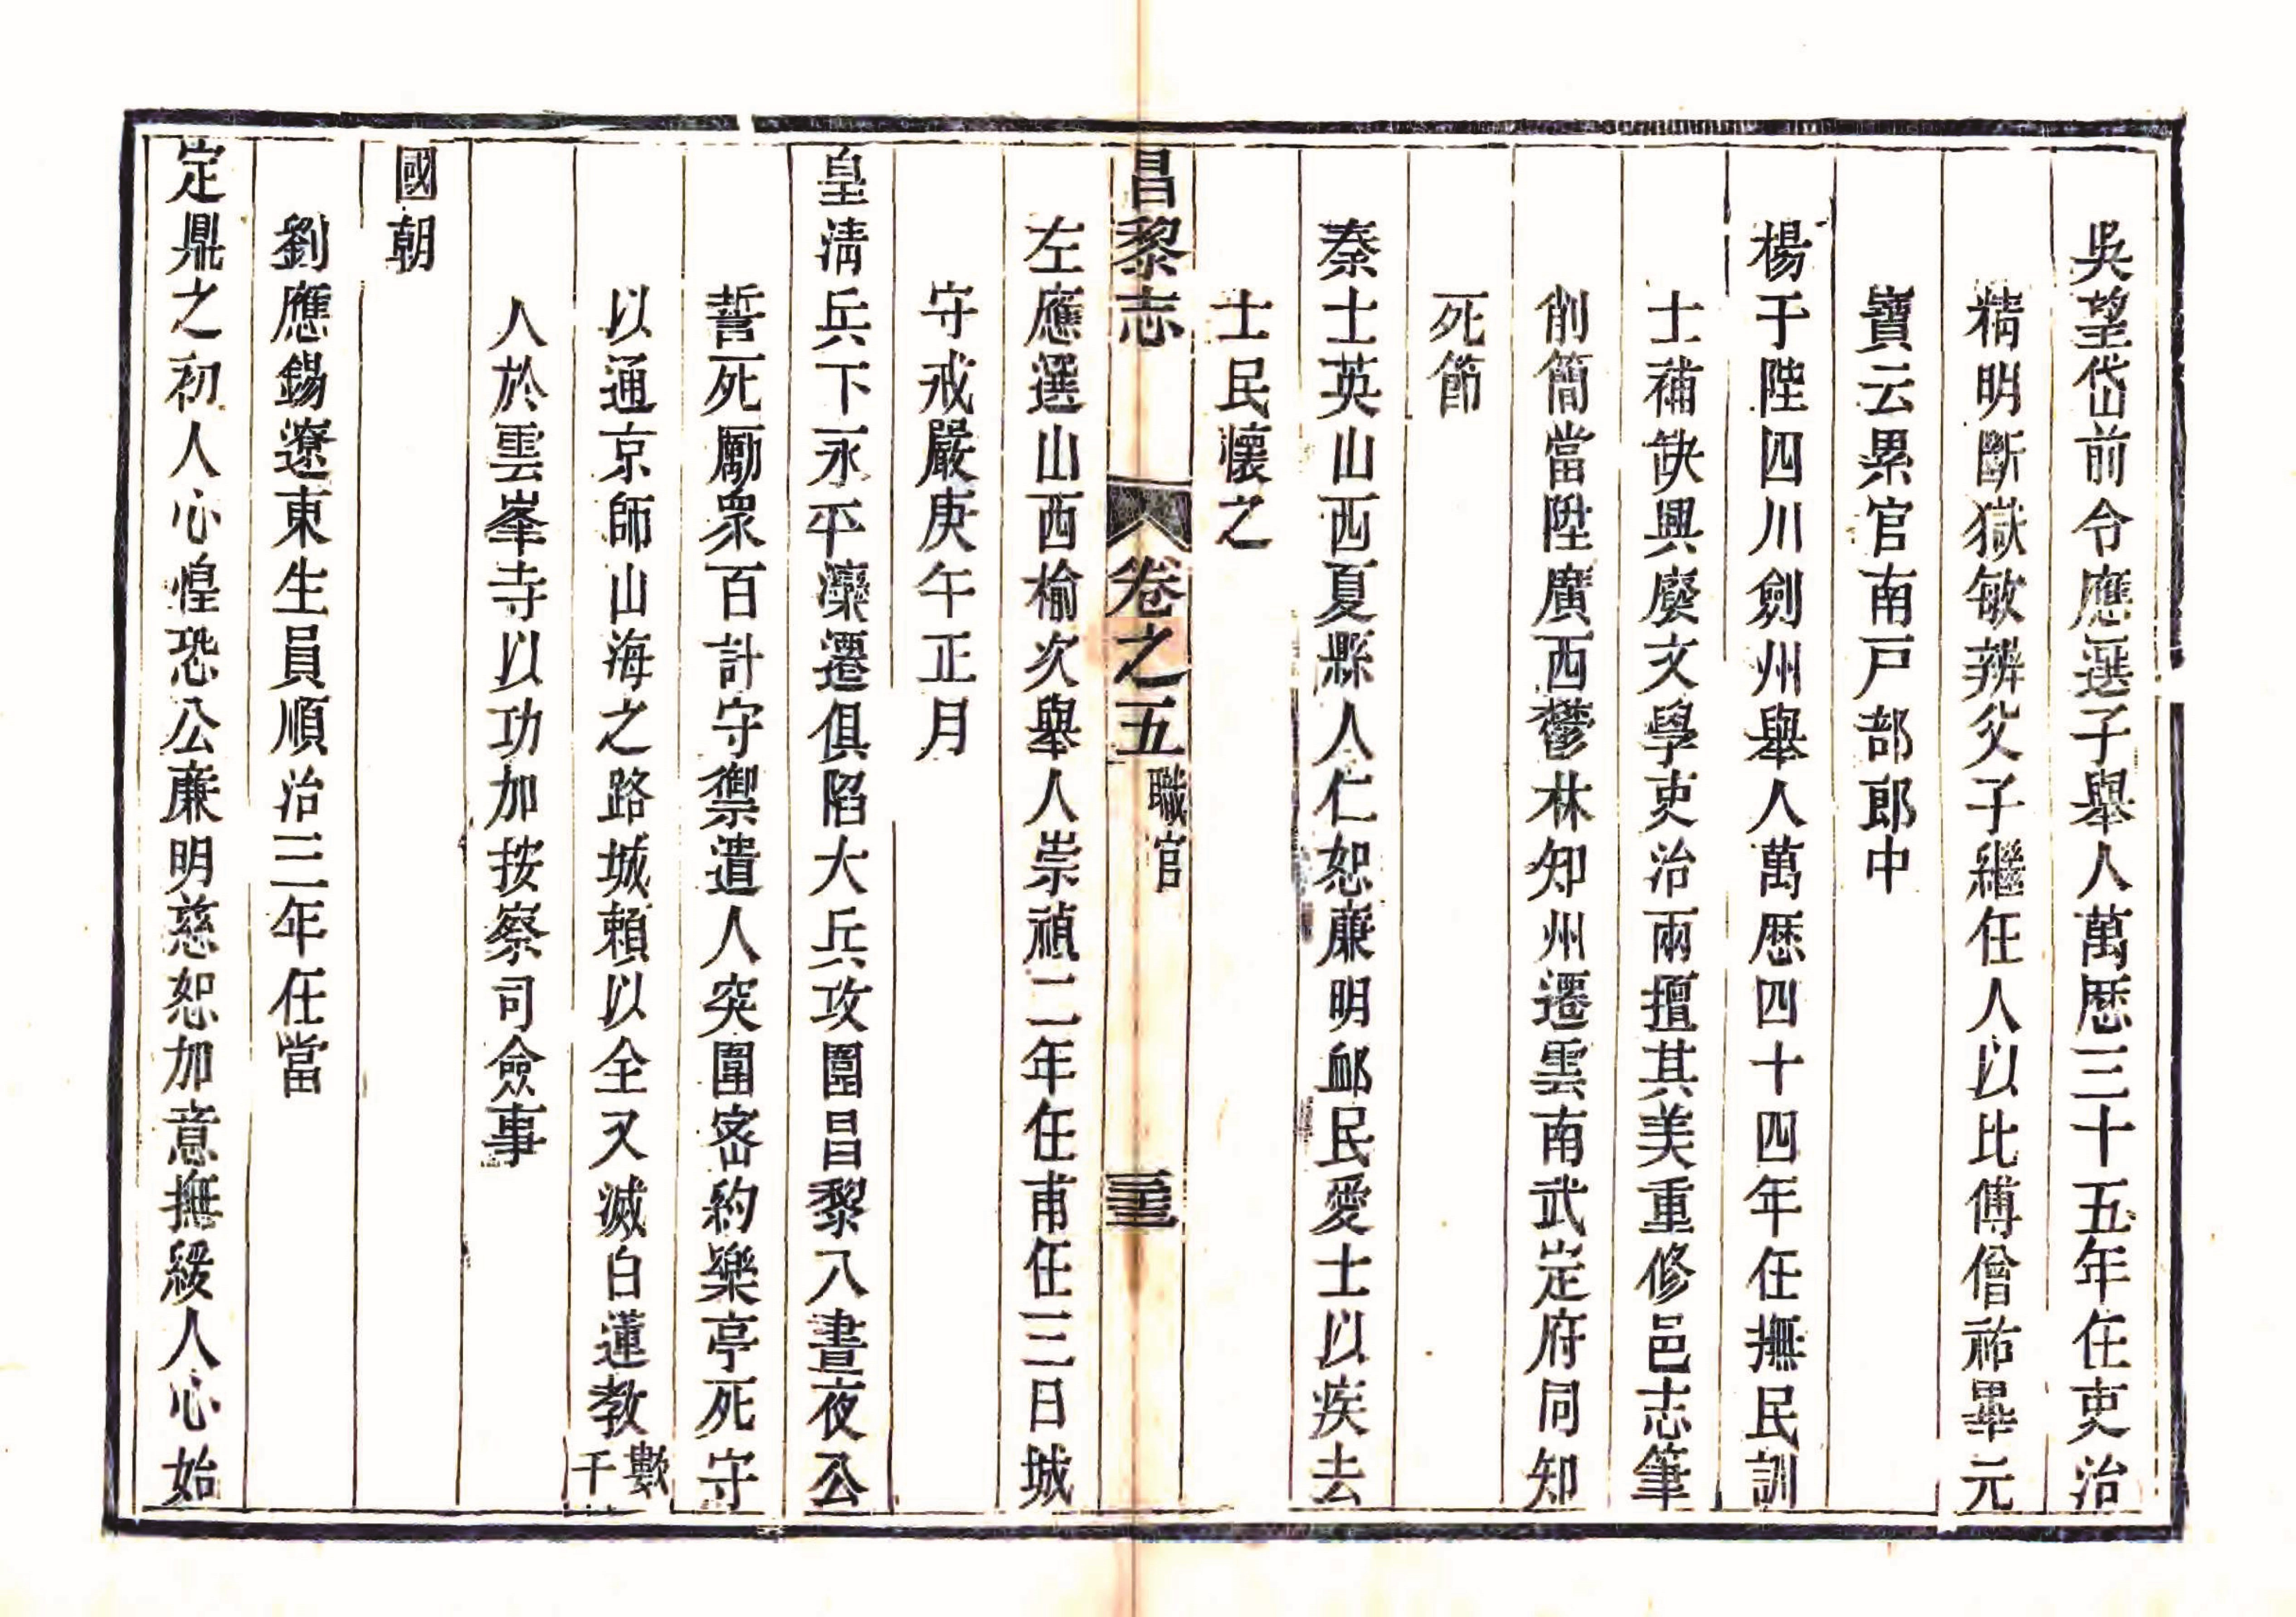 吳望岱前令應選子舉人萬厯三十五年任吏治
精明斷獄敏辨父子繼任人以比傅僧祐畢元
寶云累官南戸部郎中
楊于陛四川劍州舉人萬厯四十四年任撫民訓
士補缺興廢文學吏治兩擅其美重修邑志筆
削簡當陞廣西鬱林知州遷雲南武定府同知
死節
秦士英山西夏縣人仁恕亷明䘏民愛士以疾去
士民懷之
昌黎志 卷之五 職官 三十三
左應選山西榆次舉人崇禎二年任甫任三日城
守戒嚴庚午正月
皇清兵下永平灤遷俱陷大兵攻圍昌黎八晝夜公
誓死勵衆百計守禦遣人突圍宻約樂亭死守
以通京師山海之路城頼以全又滅白蓮教數千
人於雲峯寺以功加按察司僉事
國朝
劉應錫遼東生員順治三年任當
定鼎之初人心惶恐公亷明慈恕加意撫綏人心始